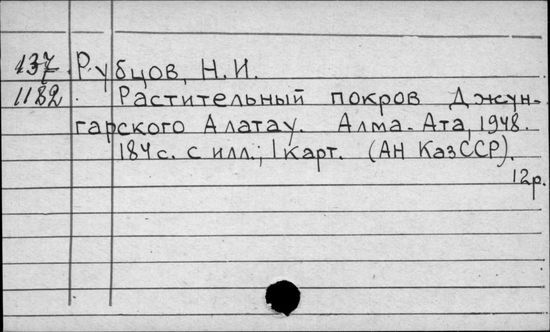 137 Рубцов, Н.И.
1182 Растительный покров Джун-
гарского Алатау. Алма-Ата, 1948.
184 с. с илл.; 1 карт. (АН КазССР).
12р.